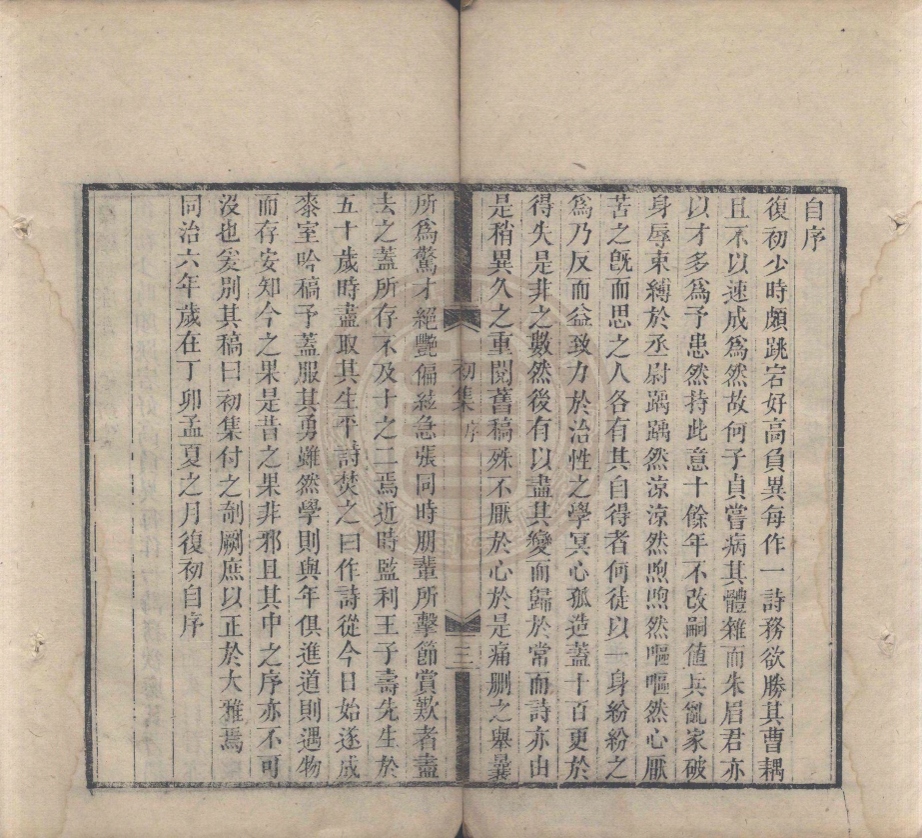 自序
復初少時頗跳宕好高負異每作一詩務欲勝其曹耦
且不以速成為然故何子貞嘗病其體雜而朱眉君亦
以才多為予患然持此意十餘年不改嗣值兵亂家破
身辱束縛於丞尉踽踽然涼涼然喣喣然嘔嘔然心厭
苦之旣而思之人各有其自得者何徒以一身紛紛之
為乃反而益致力於治性之學冥心孤造蓋十百更於
得失是非之數然後有以盡其變而歸於常而詩亦由
是稍異久之重閱舊稿殊不厭於心於是痛刪之舉曩
初集 序
三
所為驚才絕艷偏絃急張同時朋輩所擊節賞歎者盡
去之蓋所存不及十之二焉近時監利王子壽先生於
五十歲時盡取其生平詩焚之曰作詩從今日始遂成
桼室吟稿予蓋服其勇雖然學則與年俱進道則遇物
而存安知今之果是昔之果非邪且其中之序亦不可
沒也爰別其稿曰初集付之剞劂庶以正於大雅焉
同治六年歲在丁卯孟夏之月復初自序